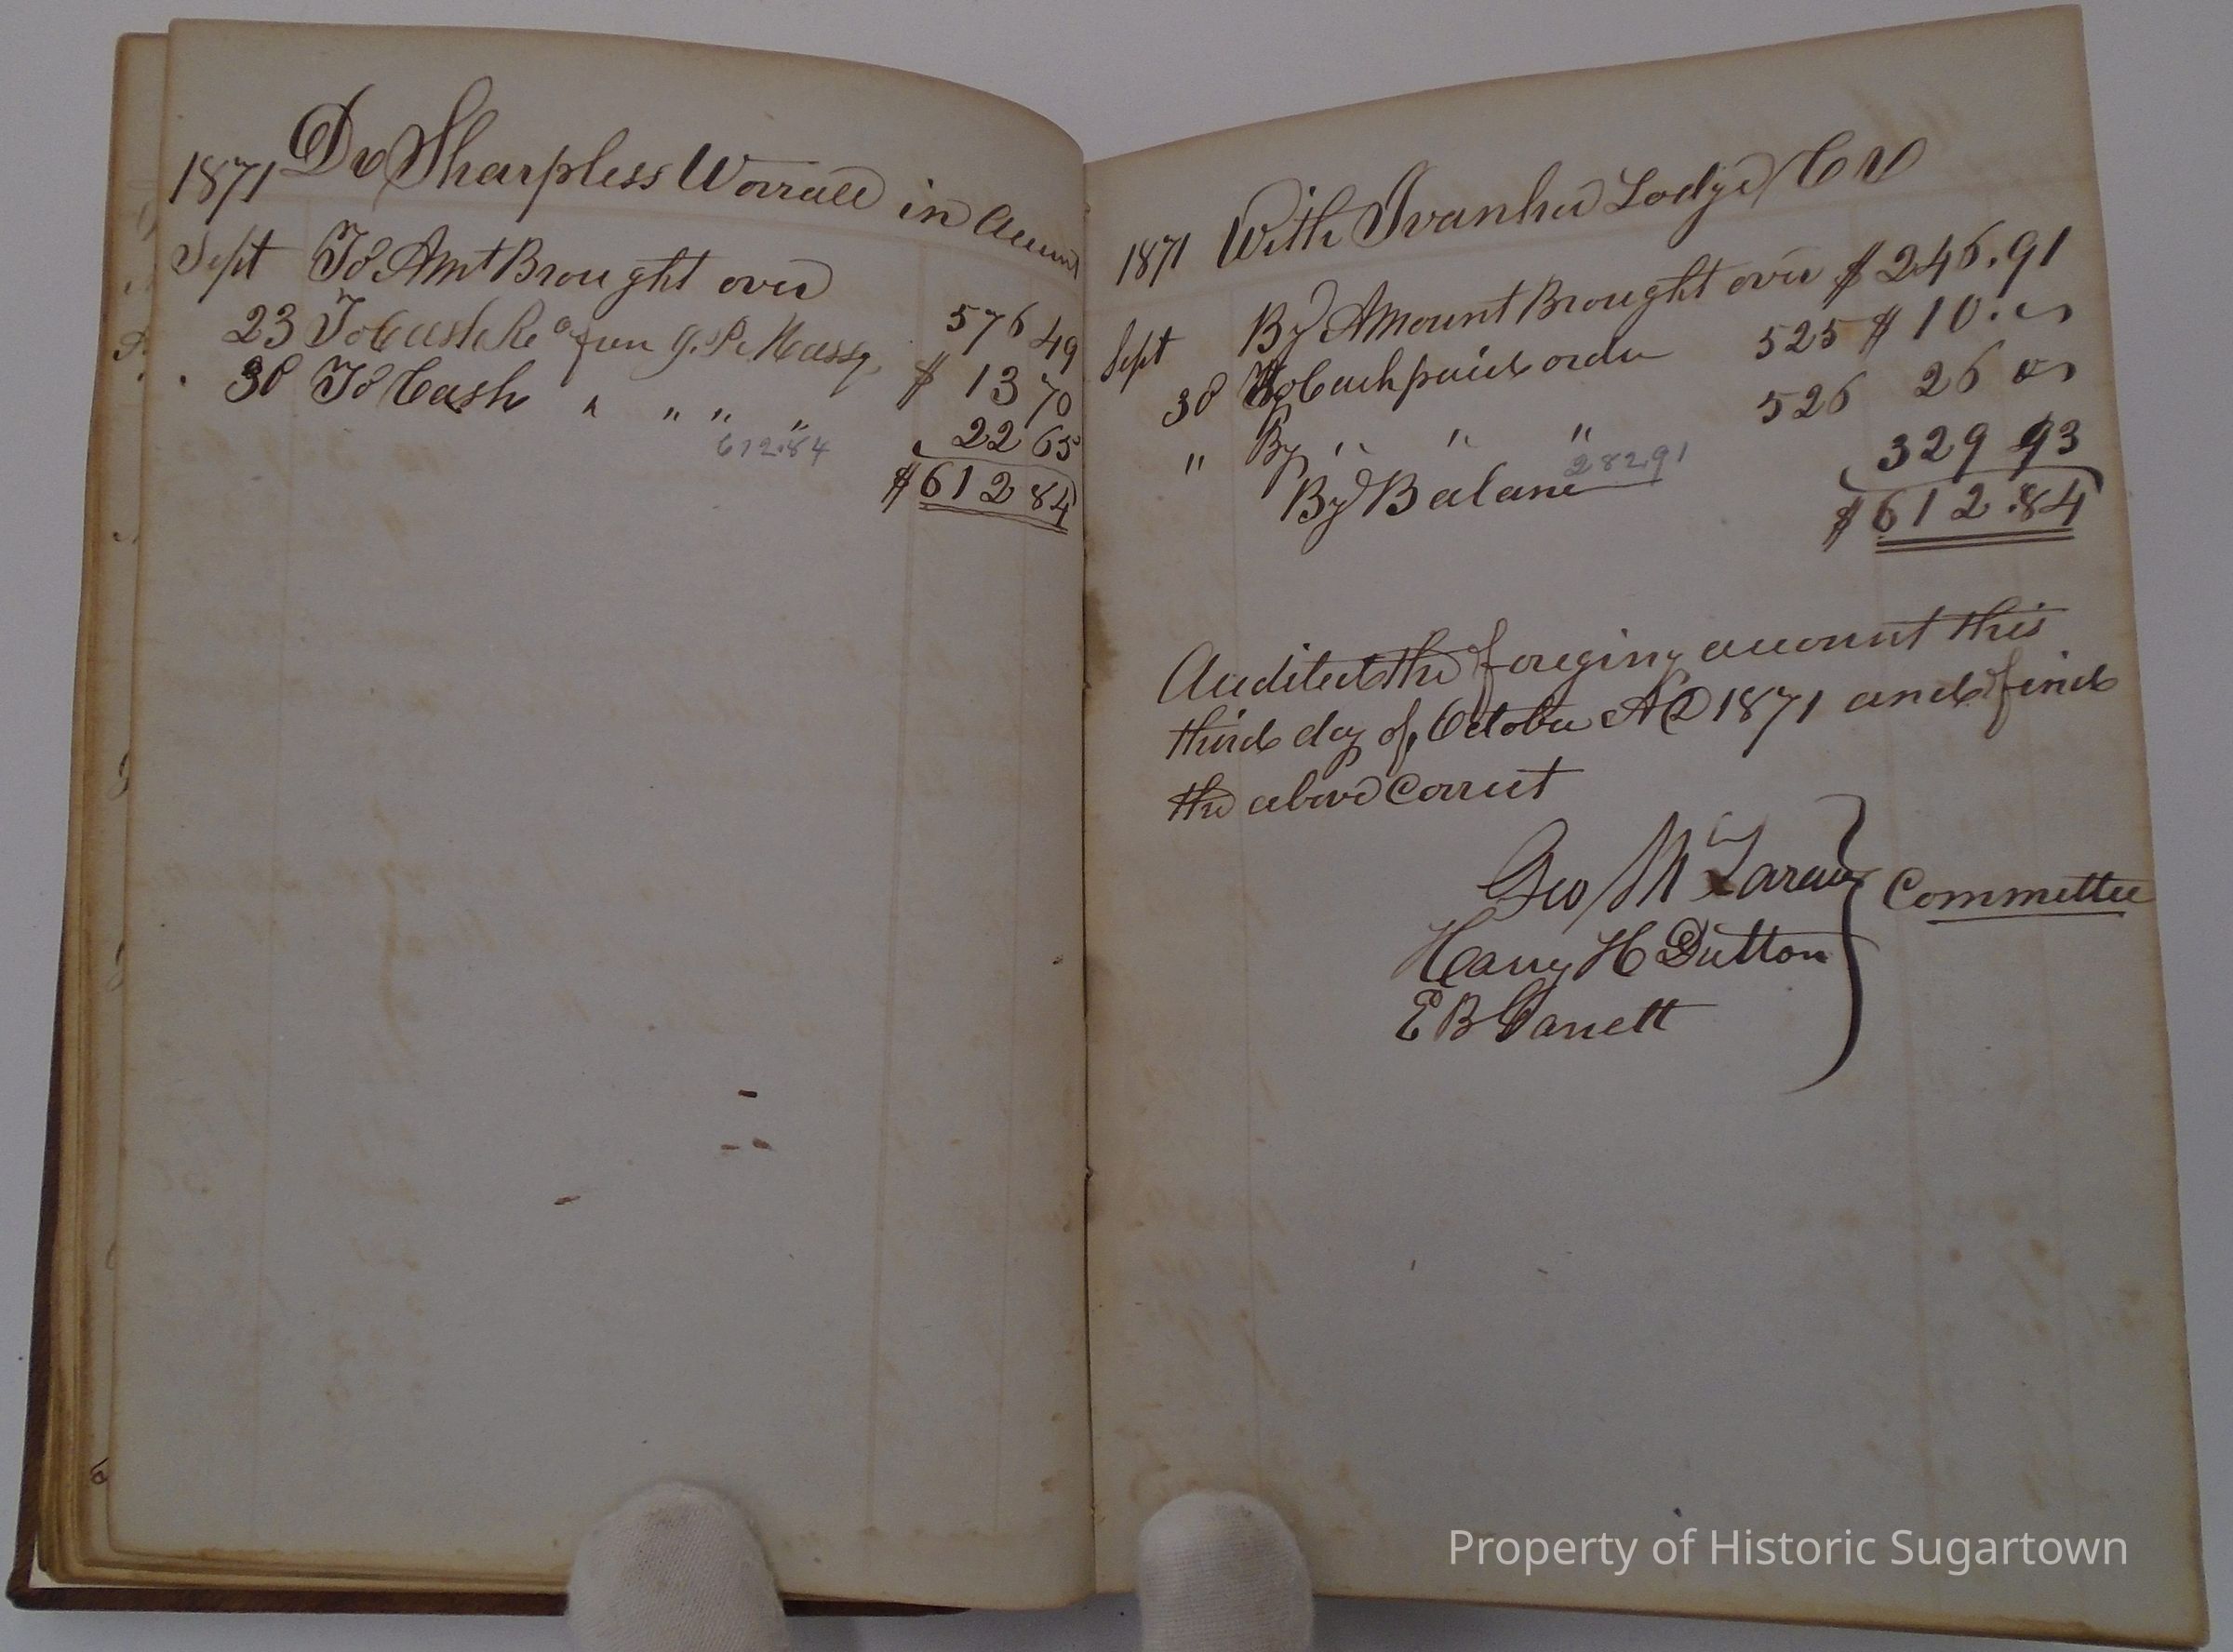 1871 Dr Sharpless Worrall in Account
Sept To Amt Brought over 576 49
23 To Cash Recd from J. P. Massey $ 13 70
30 To Cash " " " " 22 65
612.84
$612 84
1871 With Ivanhoe Lodge Cr
Sept By Amount Brought over $ 246.91
30 By Cash paid order 525 $ 10.00
" By " " " 526 26 00
282.91
By Balance 329 93
$612.84
Audited the foreging account this
third day of October AD 1871 and find
the above Correct
Geo M Committee
Harry H Dutton
E B Garrett
Property of Historic Sugartown